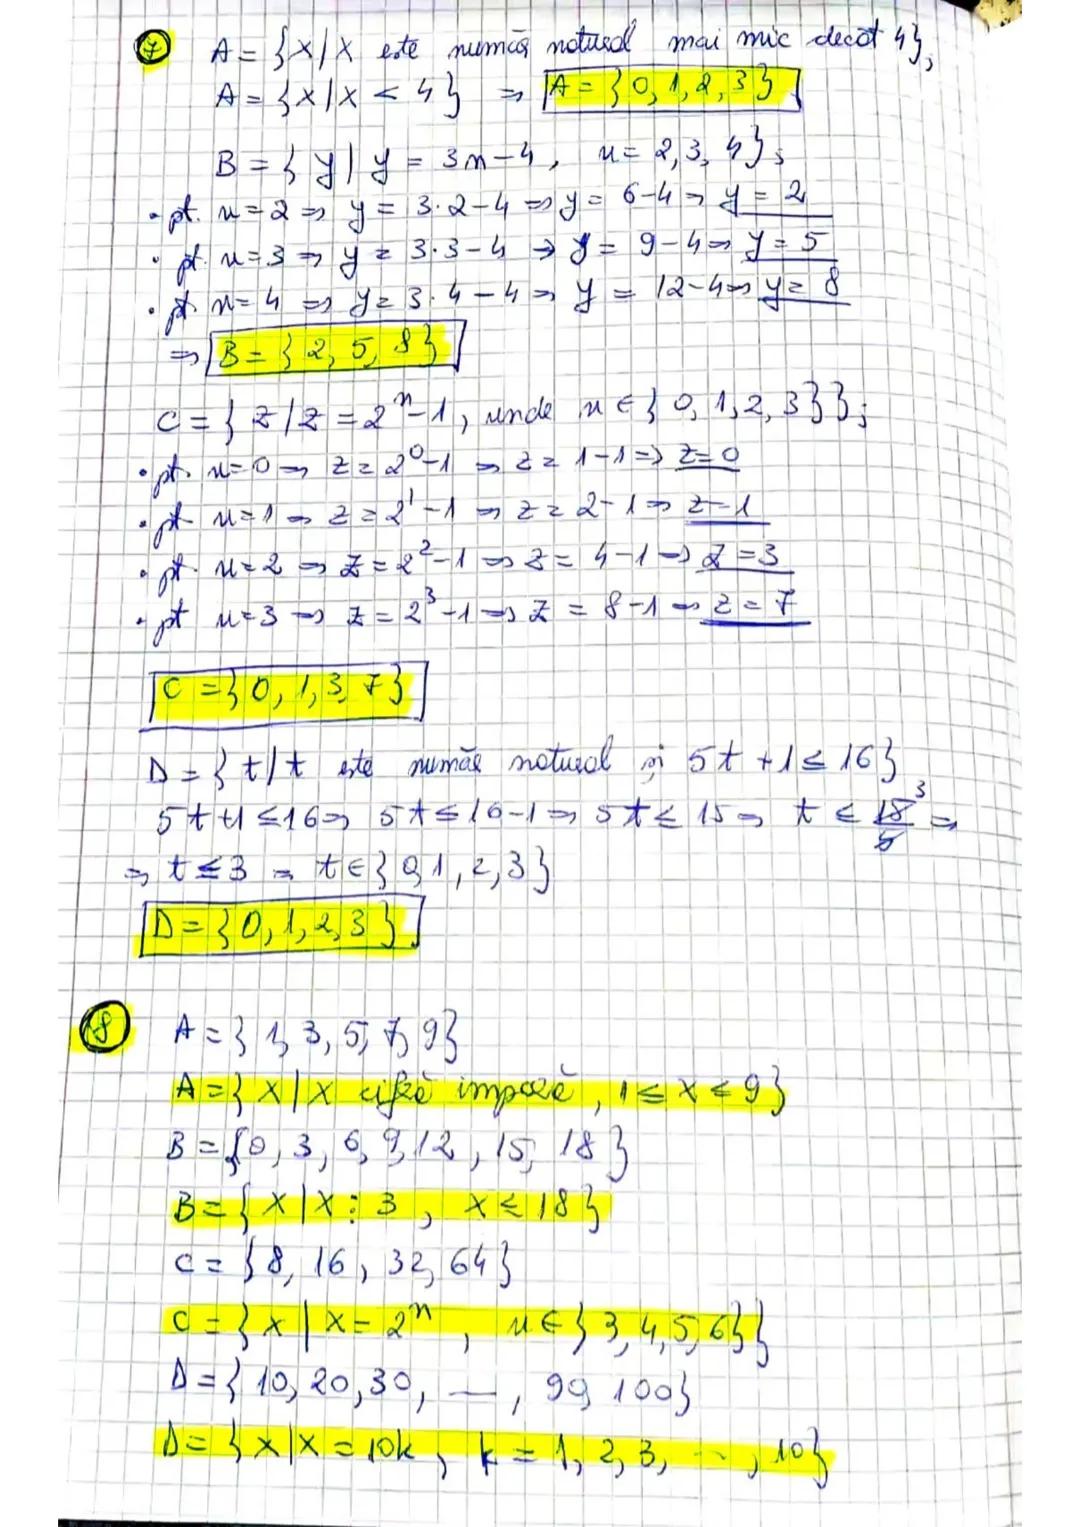 7 A = {x/x este număr natural mai mic decât 4};
A = {x/x < 4} ⇒ A = {0, 1, 2, 3}
B = {y/y = 3n-4, n = 2, 3, 4};
• pt. n=2 ⇒ y = 3·2-4 ⇒ y = 6-4 ⇒ y = 2
• pt. n=3 ⇒ y = 3·3-4 ⇒ y = 9-4 ⇒ y = 5
• pt n=4 ⇒ y = 3·4-4 ⇒ y = 12-4 ⇒ y = 8
⇒ B = {2, 5, 8}
C = {z/z = 2ⁿ-1, unde n ∈ {0, 1, 2, 3}};
• pt. n=0 ⇒ z = 2⁰-1 ⇒ z = 1-1 ⇒ z=0
• pt n=1 ⇒ z = 2¹-1 ⇒ z = 2-1 ⇒ z=1
• pt. n=2 ⇒ z = 2²-1 ⇒ z = 4-1 ⇒ z=3
• pt n=3 ⇒ z = 2³-1 ⇒ z = 8-1 ⇒ z = 7
C = {0, 1, 3, 7}
D = {t/t este număr natural și 5t + 1 ≤ 16}
5t+1 ≤ 16 ⇒ 5t ≤ 16-1 ⇒ 5t ≤ 15 ⇒ t ≤ 15/5 3 ⇒
⇒ t ≤ 3 ⇒ t ∈ {0, 1, 2, 3}
D = {0, 1, 2, 3}
8 A = {1, 3, 5, 7, 9}
A = {x/x cifră impară, 1 ≤ x ≤ 9}
B = {0, 3, 6, 9, 12, 15, 18}
B = {x/x ⋮ 3, x ≤ 18}
C = {8, 16, 32, 64}
C = {x/x = 2ⁿ, n ∈ {3, 4, 5, 6}}
D = {10, 20, 30, —, 90, 100}
D = {x/x = 10k, k = 1, 2, 3, ..., 10}